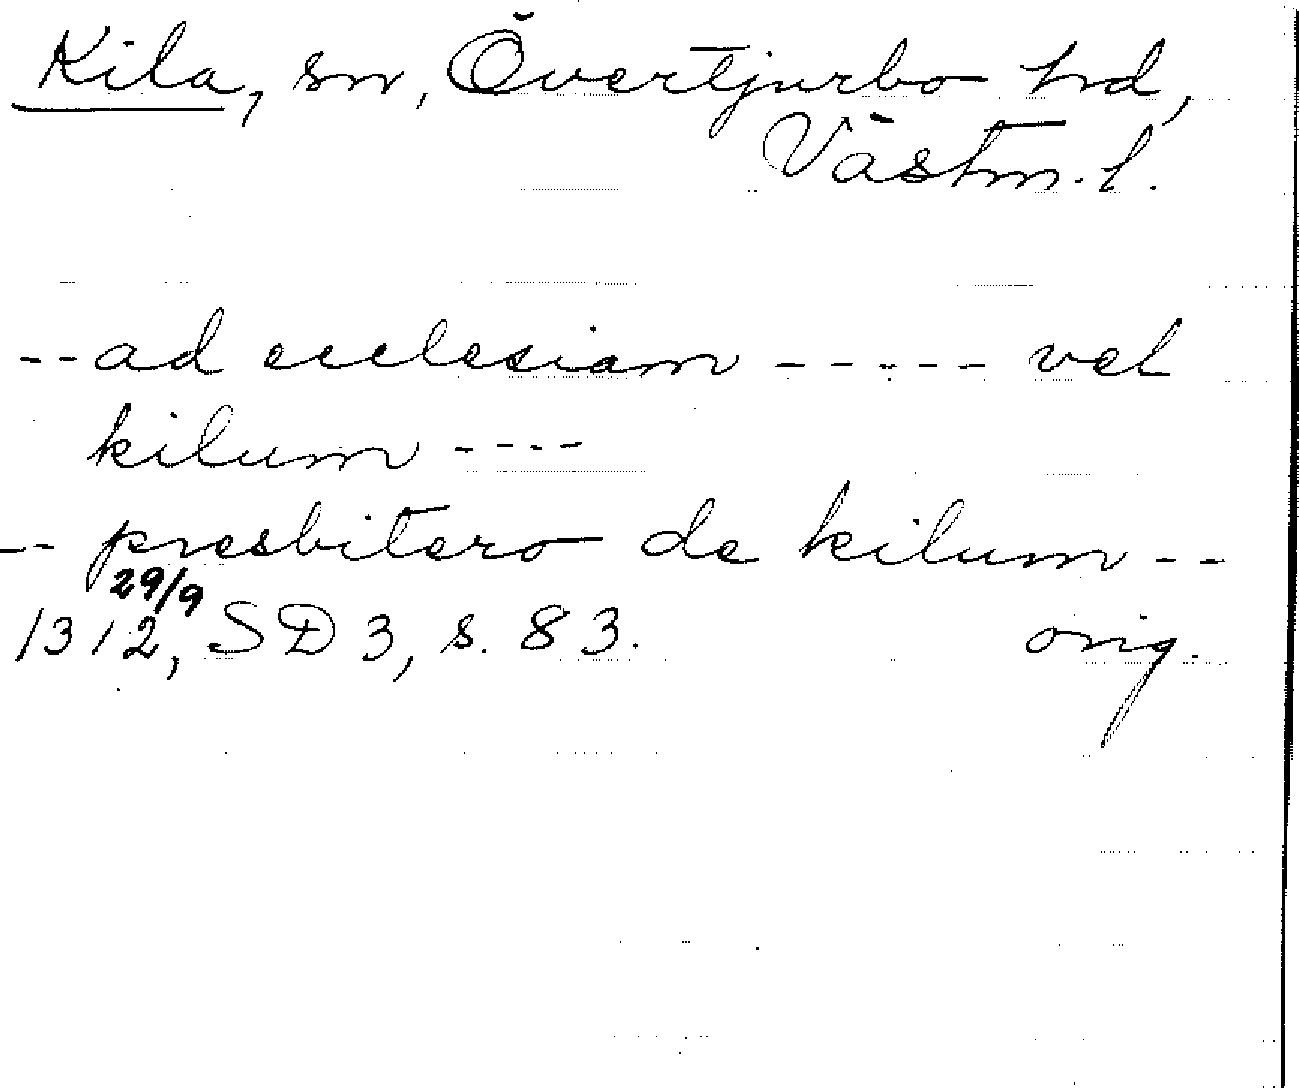 Kila, sn, Övertjurbo hd,
Västm. l.
--ad ecclesiam ----- vel
kilum ----
-- presbitero de kilum --
29/9
1312, SD 3, s. 83. orig.